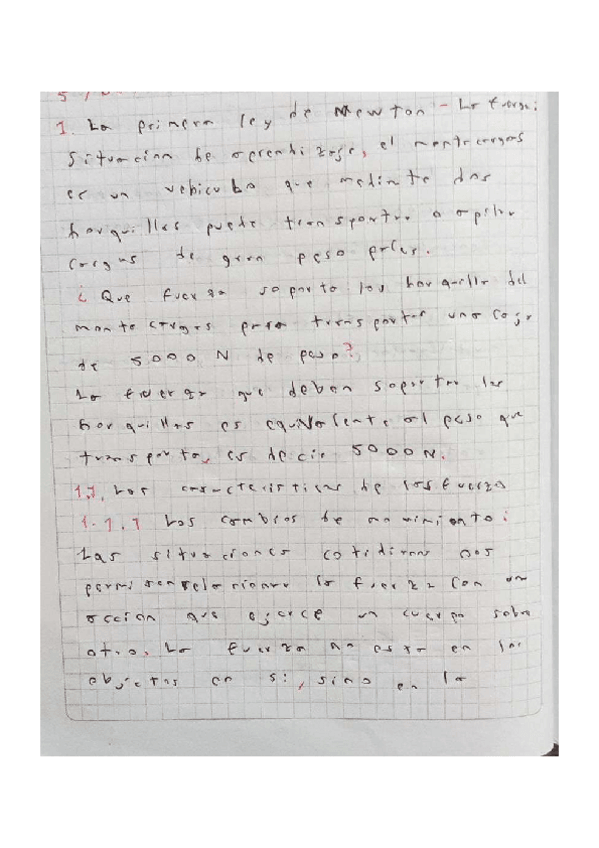 1. La primera ley de Newton - La fuerza:
situacion de aprendizaje, el montacargas
es un vehiculo que mediante dos
horquillas puede transportar o apilar
cargas de gran peso
¿Que fuerza soporta las horquillas del
montacargas para transportar una caja
de 5000 N de peso?
La fuerza que deben soportar las
horquillas es equivalente al peso que
transporta, es decir 5000 N.
1.1. Las caracteristicas de las fuerza
1.1.1 Los cambios de movimiento:
Las situaciones cotidianas nos
permiten relacionar la fuerza con una
accion que ejerce un cuerpo sobre
otro. La fuerza no esta en los
objectos en si, sino en la